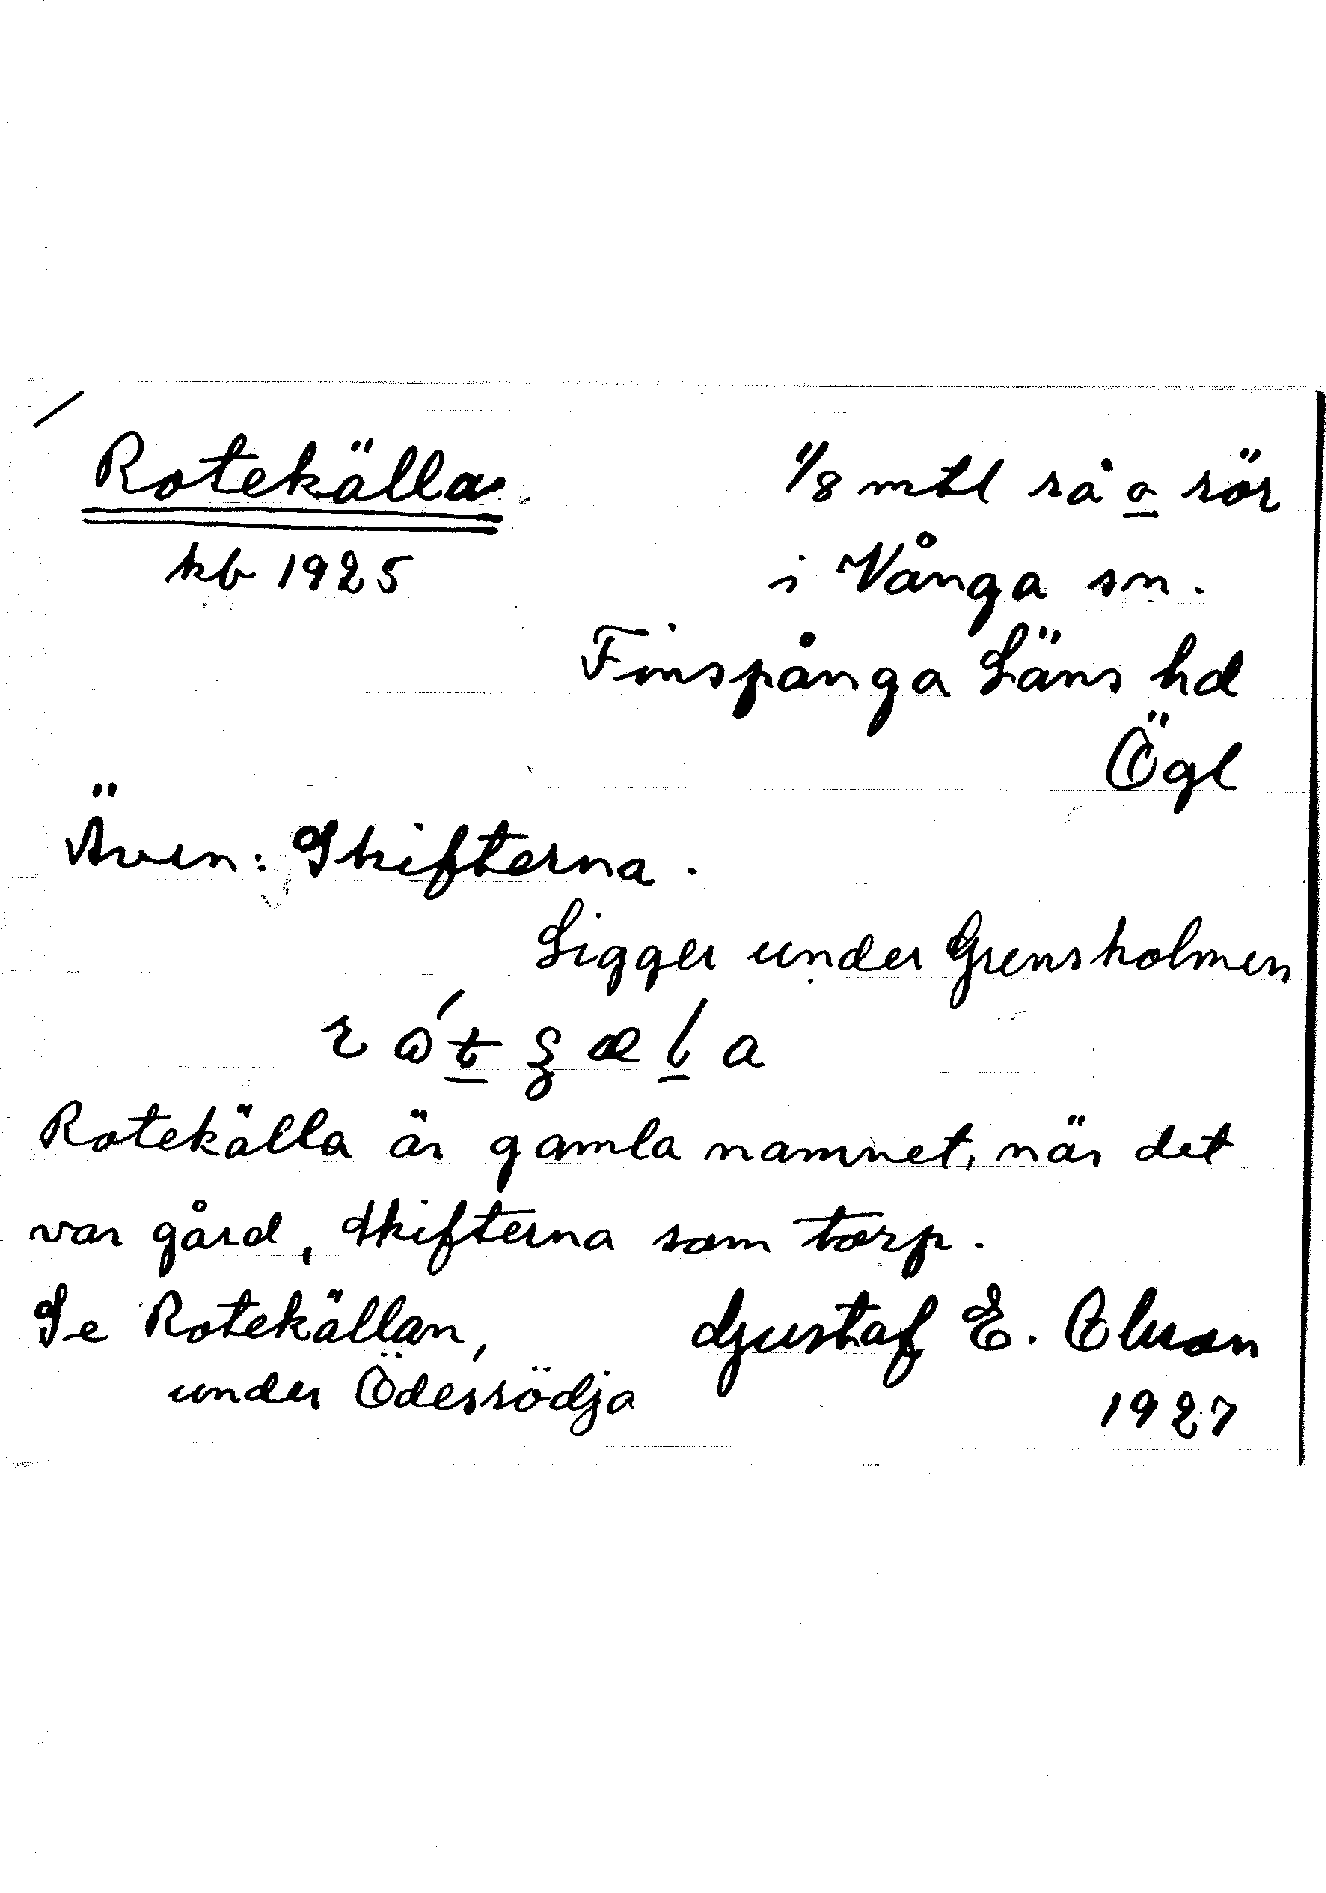 Rotekälla. 1/8 mtl rå o rör
kb 1925 i Vånga sn.
Finspånga Läns hd
Ögl
Även: Skifterna.
Ligger under Grensholmen
Rotekälla är gamla namnet, när det
var gård, Skifterna som torp.
Se Rotekällan, Gustaf E. Olsson
under Ödessödja 1927